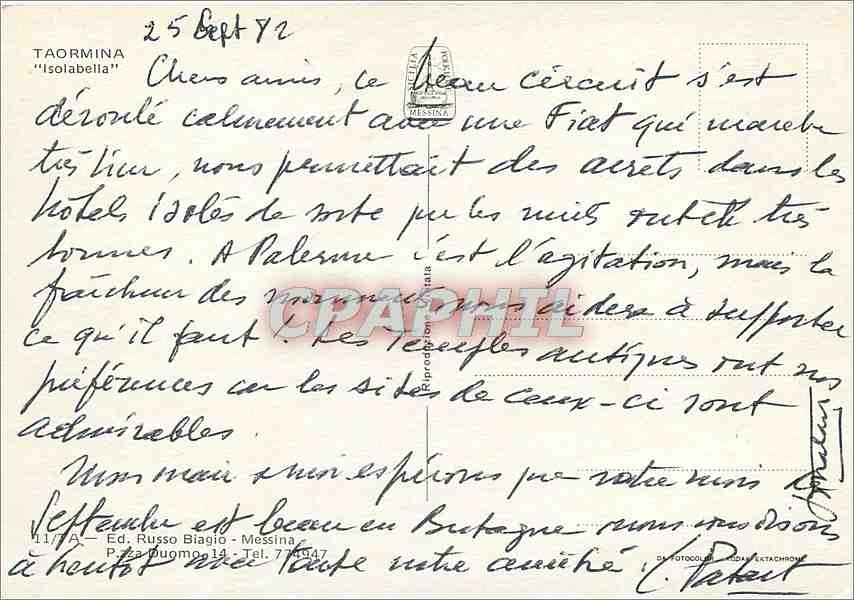 25 Sept 82
TAORMINA
"Isolabella"
SICILIA
MESSINA
Chers amis, ce beau circuit s'est
déroulé calmement avec une Fiat qui marche
très bien, nous permettant des arrêts dans les
hôtels isolés de sorte que les nuits ont été très
bonnes. A Palerme c'est l'agitation, mais la
fraîcheur des monuments nous aidera à supporter
ce qu'il faut ! Les Temples antiques ont nos
préférences car les sites de ceux-ci sont
admirables.
mari & moi espérons que votre mois de
Septembre est beau en Bretagne nous vous disons
à bientôt avec toute notre amitié.
CPAPHIL
Riproduzione vietata
11/7A - Ed. Russo Biagio - Messina
P.zza Duomo, 14 - Tel. 774947
DA FOTOCOLOR KODAK EKTACHROME